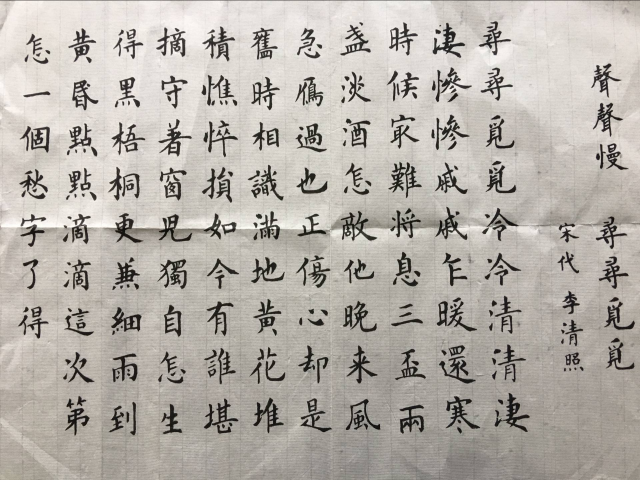 聲聲慢 尋尋覓覓
宋代 李清照
尋尋覓覓冷冷清清淒
淒慘慘戚戚乍暖還寒
時候㝡難将息三盃兩
盏淡酒怎敵他晚来風
急鴈過也正傷心却是
舊時相識滿地黃花堆
積憔悴損如今有誰堪
摘守著窗兒獨自怎生
得黑梧桐更兼細雨到
黃昏點點滴滴這次第
怎一個愁字了得